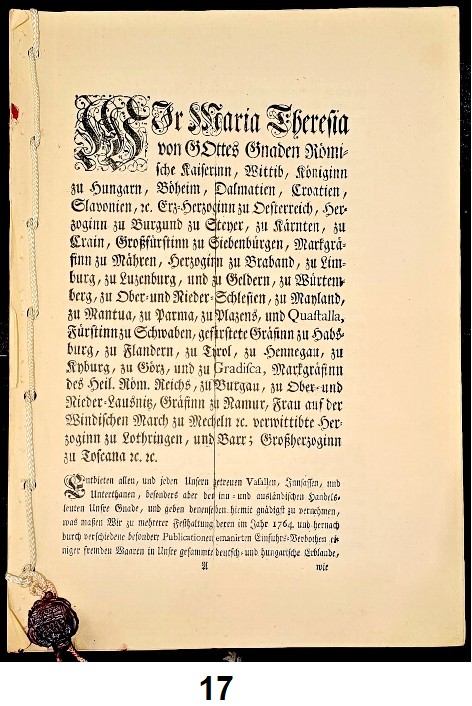 WIr Maria Theresia
von GOttes Gnaden Römi-
sche Kaiserinn, Wittib, Königinn
zu Hungarn, Böheim, Dalmatien, Croatien,
Slavonien, ꝛc. Erz-Herzoginn zu Oesterreich, Her-
zoginn zu Burgund zu Steyer, zu Kärnten, zu
Crain, Großfürstinn zu Siebenbürgen, Markgrä-
finn zu Mähren, Herzoginn zu Braband, zu Lim-
burg, zu Luzenburg, und zu Geldern, zu Würtem-
berg, zu Ober- und Nieder-Schlesien, zu Mayland,
zu Mantua, zu Parma, zu Plazens, und Quastalla,
Fürstinn zu Schwaben, gefürstete Gräfinn zu Habs-
burg, zu Flandern, zu Tyrol, zu Hennegau, zu
Kyburg, zu Görz, und zu Gradisca, Markgräfinn
des Heil. Röm. Reichs, zu Burgau, zu Ober- und
Nieder-Lausnitz, Gräfinn zu Namur, Frau auf der
Windischen March zu Mecheln ꝛc. verwittibte Her-
zoginn zu Lothringen, und Barr; Großherzoginn
zu Toscana ꝛc. ꝛc.
Entbieten allen, und jeden Unsern getreuen Vasallen, Innsassen, und
Unterthanen, besonders aber des inn- und ausländischen Handels-
leuten Unsre Gnade, und geben denenselben hiemit gnädigst zu vernehmen,
was maßen Wir zu mehrerer Festhaltung deren im Jahr 1764. und hernach
durch verschiedene besondere Publicationen emanirten Einfuhrs-Verbothen ei-
niger fremden Waaren in Unsre gesammte deutsch- und hungarische Erblande,
A wie
17